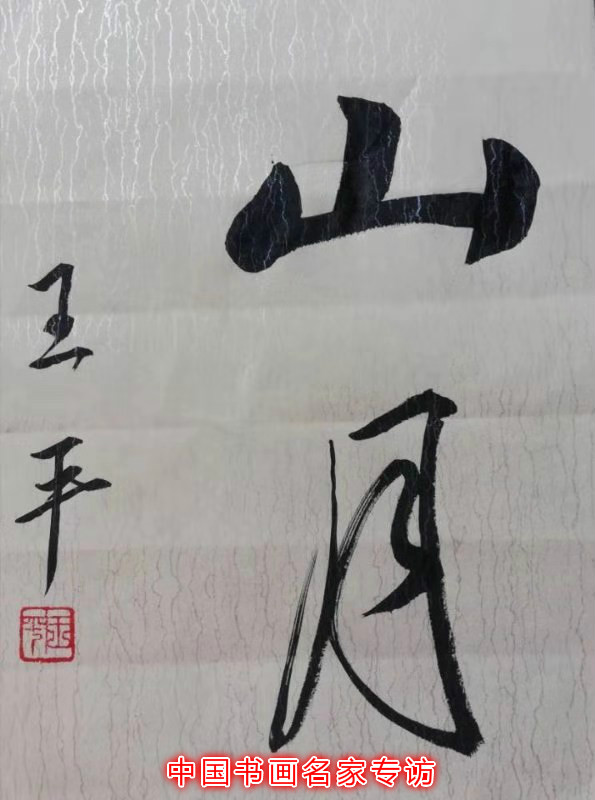 山月
王平
中国书画名家专访